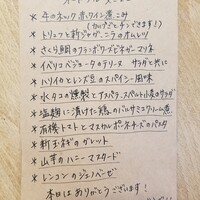 * 牛のネック 赤ワイン煮こみ
(カルディとチンできます!)
* トリュフと新ジャガ、ニラのオムレツ
* さくら鯛のフラ・ポワーズビネガーマリネ
* イベリコベジョータのテリーヌ サラダと共に
* ハツイカとレンズ豆のスパイシー風味
* 水タコの燻製とアスパラ、スペルト小麦のサラダ
* 塩麹に漬けた鶏のバルサミコクリーム煮
* 有機トマトとマスカルポーネチーズのパスタ
* 新玉ネギのガレット
* 山芋のハニーマスタード
* レンコンのジェノベーゼ
本日はありがとうございます!